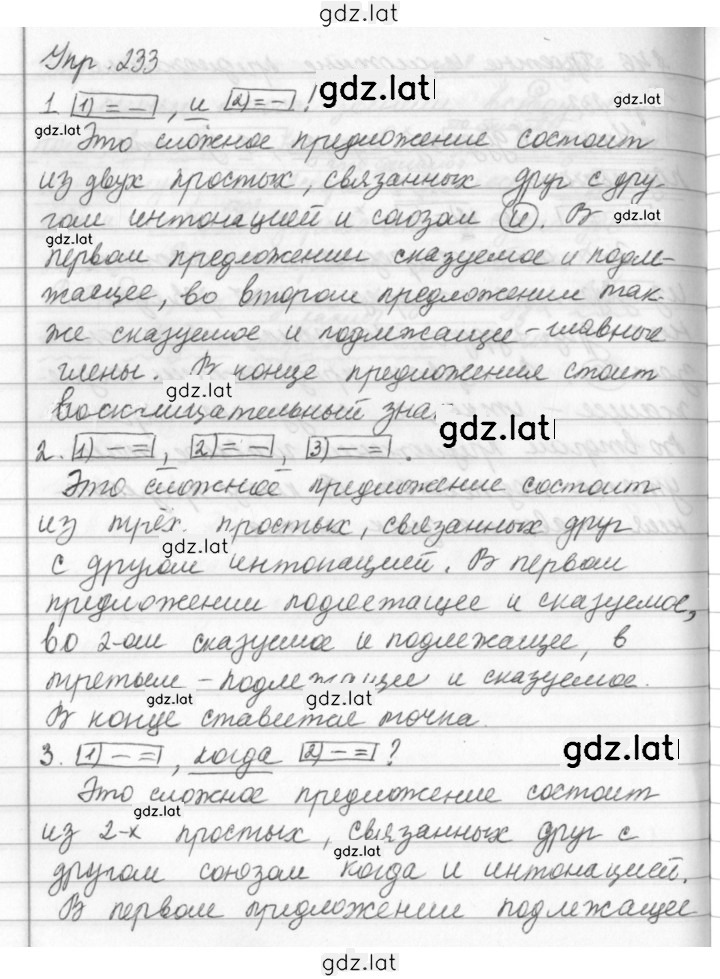 gdz.lat
Упр. 233
1. [1) = –], и [2) = –]!
gdz.lat
gdz.lat
gdz.lat
Это сложное предложение состоит
из двух простых, связанных друг с дру-
гом интонацией и союзом и. В
gdz.lat
gdz.lat
первом предложении сказуемое и подле-
жащее, во втором предложении так-
же сказуемое и подлежащее – главные
члены. В конце предложения стоит
gdz.lat
восклицательный зна
gdz.lat
2. [1) – =], [2) = –], [3) – =].
Это сложное предложение состоит
из трёх простых, связанных друг
gdz.lat
с другом интонацией. В первом
предложении подлежащее и сказуемое,
во 2-ом сказуемое и подлежащее, в
третьем – подлежащее и сказуемое.
gdz.lat
gdz.lat
В конце ставится точка.
3. [1) – =], когда [2) – =]?
gdz.lat
Это сложное предложение состоит
gdz.lat
из 2-х простых, связанных друг с
gdz.lat
другом союзом когда и интонацией.
В первом предложении подлежащее
gdz.lat